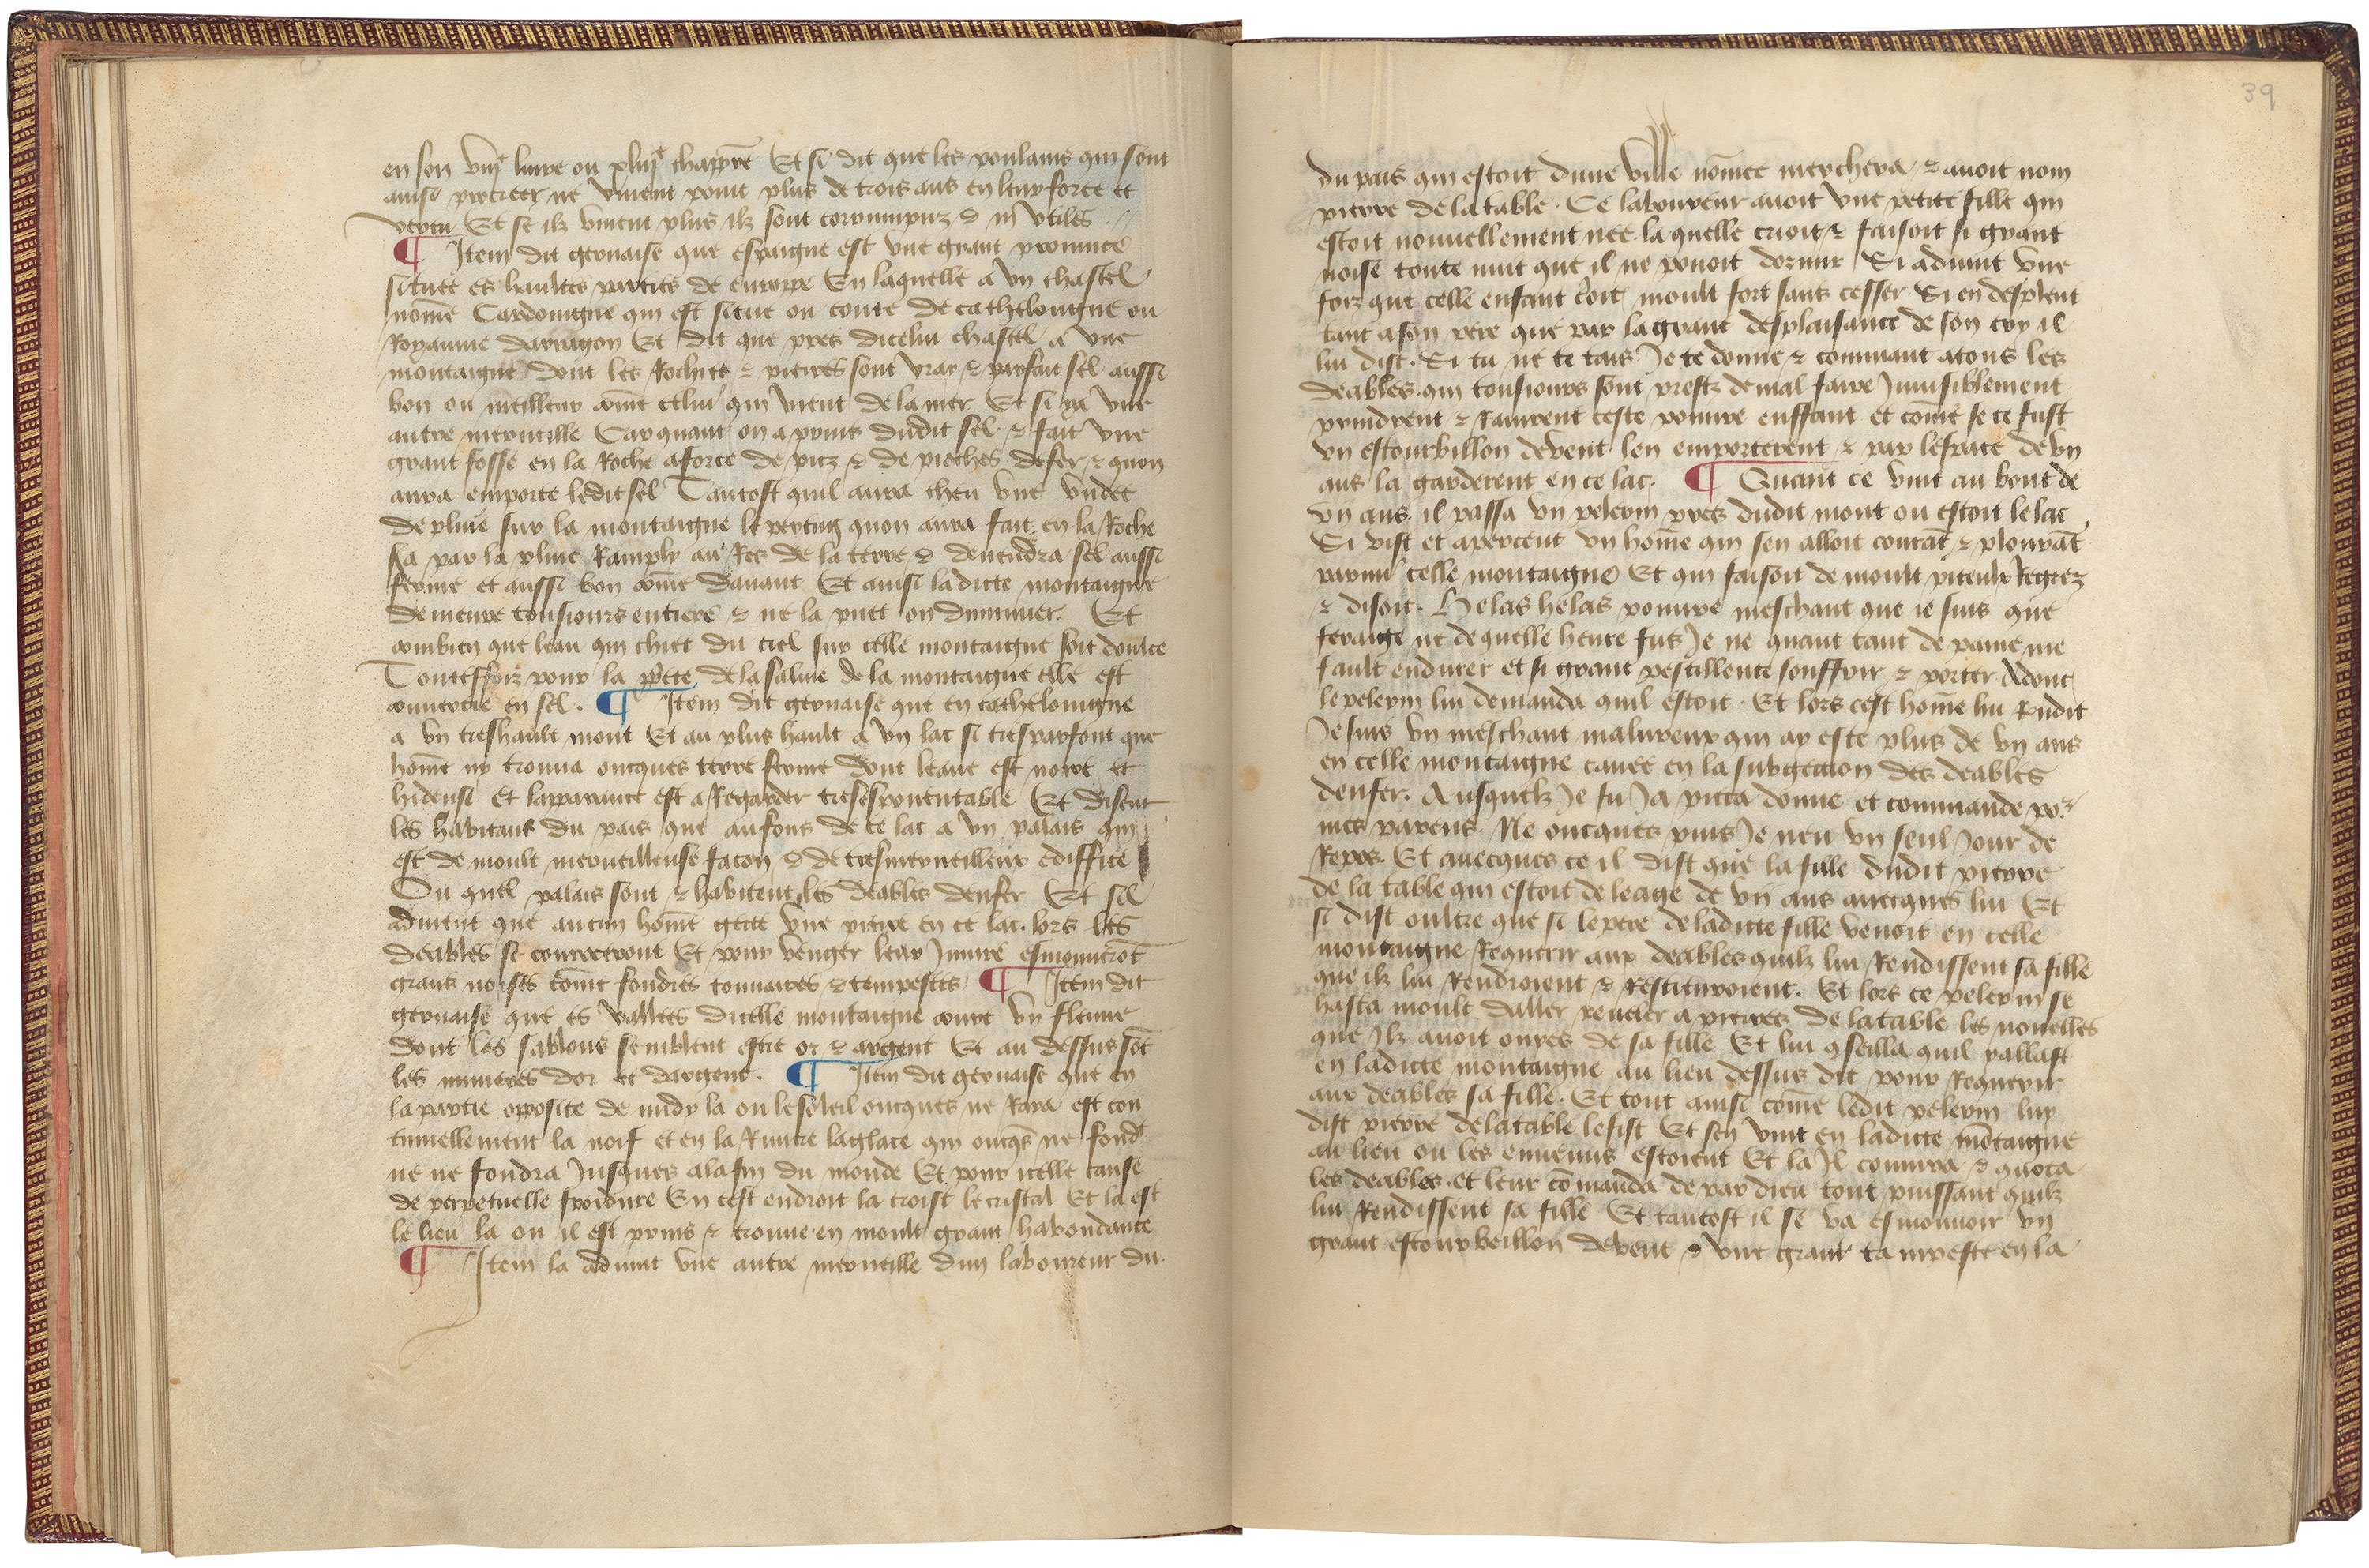 en son viije livre ou xliije chappre Et si dit que les poulains qui sont
ainsi procreez ne vivent point plus de trois ans en leur force et
vertu Et se ilz vivent plus ilz sont corrumpuz & inutiles.
¶ Item dit gervaise que espaigne est une grant province
situee es haultes parties de europe En laquelle a un chastel
nomé Cardonigne qui est situe ou conte de cathelongne ou
Royaume darragon Et dit que pres dicelui chastel a une
montaigne dont les Rochiers & pierres sont vray & parfait sel aussi
bon ou meilleur come celui qui vient de la mer Et si y a une
autre merveille Car quant on a prins dudit sel & fait une
grant fosse en la Roche a force de picz & de pioches de fer & quon
aura emporte ledit sel Tantost quil aura cheu une undee
de pluie sur la montaigne le pertuis quon aura fait en la Roche
sa par la pluie Ramply au Res de la terre & devendra sel aussi
ferme et aussi bon come davant Et ainsi ladicte montaigne
demeure tousiours entiere & ne la puet on diminuer. Et
combien que leau qui chiet du ciel sur celle montaigne soit doulce
Touteffoiz pour la pprete de la saline de la montaigne elle est
convertie en sel. ¶ Item dit gervaise que en cathelongne
a un treshault mont Et au plus hault a un lac si tresparfont que
home ny trouva oncques terre ferme dont leaue est noire et
hideuse et lapparance est a Regarder tresespoventable Et disent
les habitans du pais que au fons de ce lac a un palais qui
est de moult merveilleuse facon & de tresmerveilleux ediffice
Ou quel palais sont & habitent les deables denfer Et sil
advient que aucun home gette une pierre en ce lac. lors les
deables se courrecront Et pour venger leur iniure esmouverot
grans noises come fondres tonnaires & tempestes ¶ Item dit
gervaise que es vallees dicelle montaigne court un fleuve
dont les sablons semblent estre or & argent Et au dessus sot
les minieres dor et dargent. ¶ Item dit gervaise que en
la partie opposite de midy la ou le soleil oncques ne Raya est con
tinuellement la noif et en la Riviere la glace qui oncqs ne fondi
ne ne fondra Jusques a la fin du monde Et pour icelle cause
de perpetuelle froidure En cest endroit la croist le cristal Et la est
le lieu la ou il est prins & trouve en moult grant habondance
¶ Item la advint une autre merveille dun laboureur du
39
du pais qui estoit dune ville nomee meychera & avoit nom
pierre de la table. Ce laboureur avoit une petite fille qui
estoit nouvellement nee. la quelle crioit & faisoit si grant
noise toute nuit que il ne povoit dormir Si advint une
foiz que celle enfant crioit moult fort sans cesser. Si en despleut
tant a son pere que par la grant desplaisance de son cry il
lui dist. Si tu ne te tais Je te donne & commant a tous les
deables. qui tousiours sont prestz de mal faire Invisiblement
prindrent & Ravirent ceste povure enffant et come se ce fust
un estourbillon de vent len emporterent & par lespace de vij
ans la garderent en ce lac. ¶ Quant ce vint au bout de
vij ans. il passa un pelerin pres dudit mont ou estoit le lac
Si vist et apercent un home qui sen alloit courat & plourat
parmi celle montaigne Et qui faisoit de moult piteulx Regrez
& disoit. Helas helas povure meschant que ie suis que
ferai ge ne de quelle heure fus Je ne quant tant de paine me
fault endurer et si grant pestillence souffrir & porter Adonc
le pelerin lui demanda quil estoit. Et lors cest home lui Rndit
Je suis un meschant malureux qui ay este plus de vij ans
en celle montaigne cavee en la subgection des deables
denfer. Ausquelz Je fu Ja pieca donne et commande por
mes parens. Ne oncques puis Je neu un seul Jour de
Repos. Et avecques ce il dist que la fille dudit pierre
de la table qui estoit de leage de vij ans avecques lui Et
si dist oultre que si le pere de ladicte fille venoit en celle
montaigne Requerir aux deables quilz lui Rendissent sa fille
que ilz lui Rendroient & Restituroient. Et lors ce pelerin se
hasta moult daller pencier a pierres de la table les nouvelles
que Ilz avoit ouyes de sa fille Et lui qseilla quil y allast
en ladicte montaigne au lieu dessus dit pour Requerir
aux deables sa fille. Et tout ainsi come ledit pelerin luy
dist pierre de la table le fist Et sen vint en ladicte motaigne
au lieu ou les ennemis estoient Et la Il conjura & quoca
les deables. et leur comanda de par dieu tout puissant quilz
lui Rendissent sa fille Et tantost il se va esmouvoir un
grant estourbeillon de vent & une grant tampeste en la